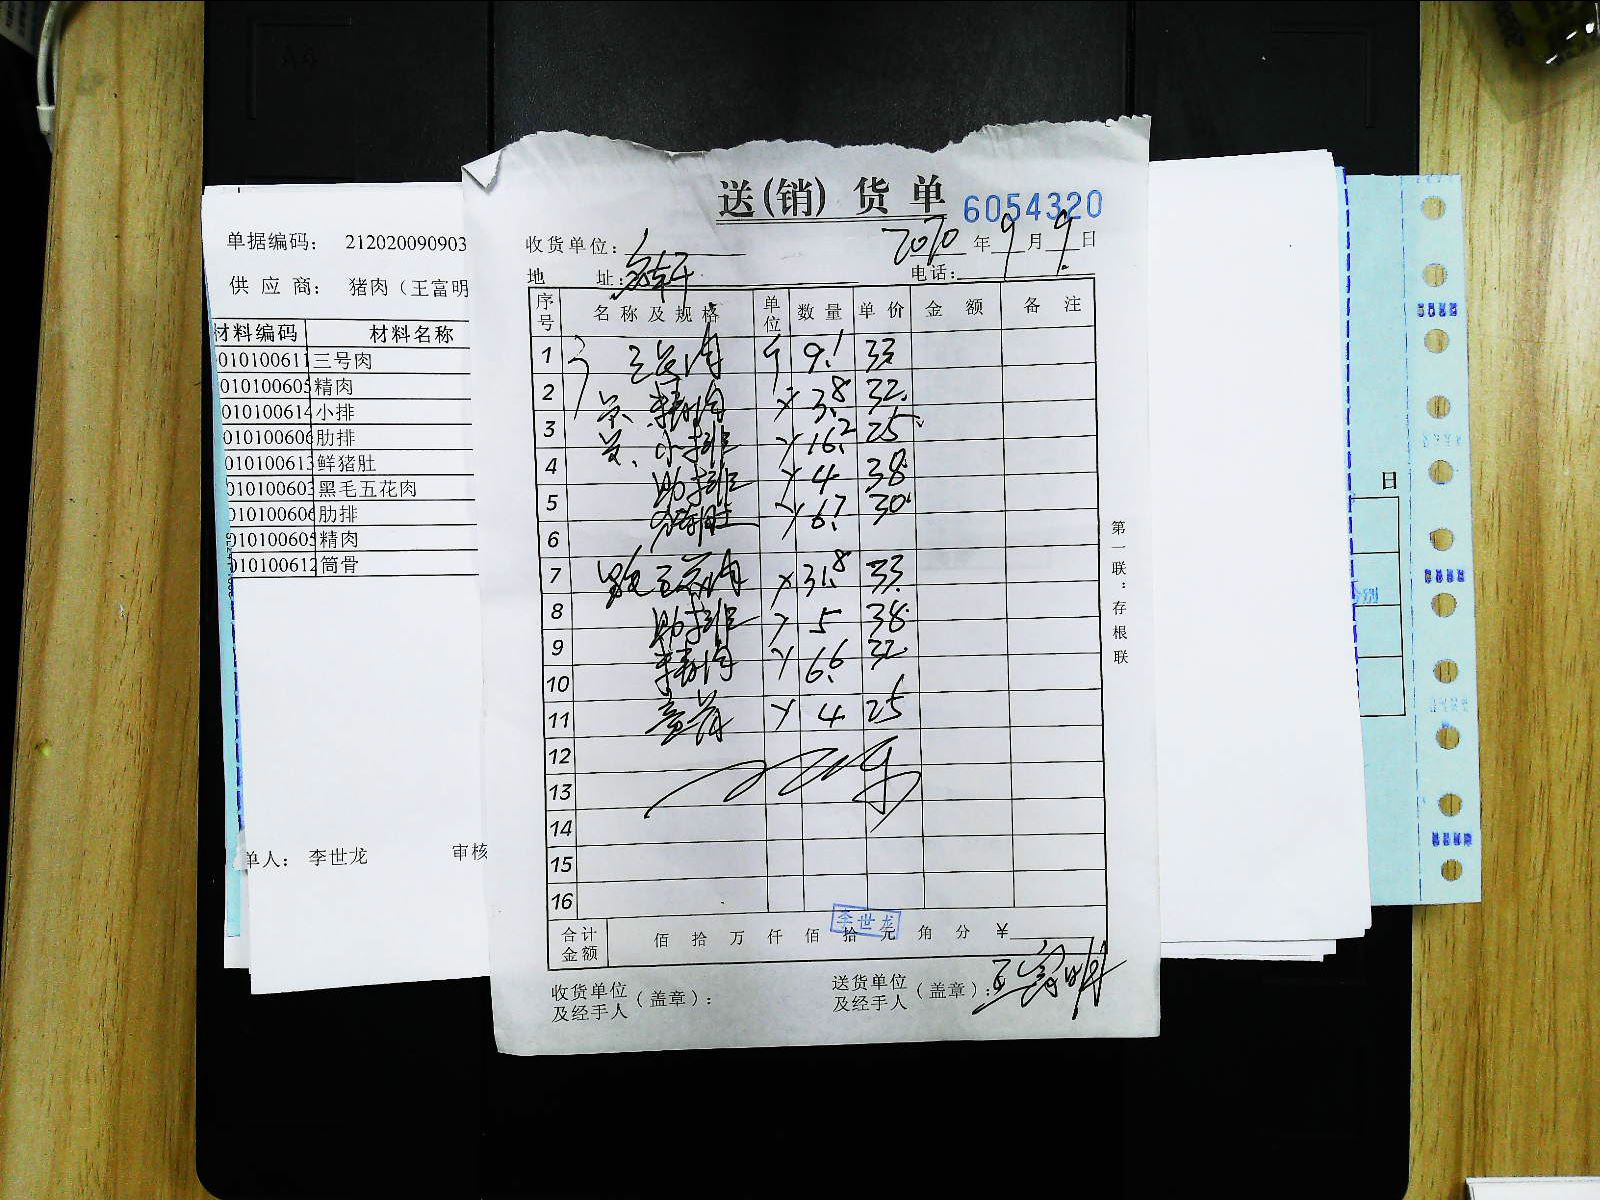 送(销)货单
6054320
收货单位:
2020年9月9日
地 址:
电话:
序号 名称及规格 单位 数量 单价 金额 备注
1 五花肉 斤 9.1 33
2 精肉 3.8 32
3 小排 16.2 25
4 肋排 4 38
5 猪肚 6.7 30
6
7 黑毛五花肉 31.8 33
8 肋排 5 38
9 精肉 6.6 32
10
11 筒骨 4 25
12
13
14
15
16
合计金额 佰 拾 万 仟 佰 拾 元 角 分 ¥
李世龙
收货单位及经手人(盖章):
送货单位及经手人(盖章): 王富明
第一联:存根联
单据编码: 212020090903
供应商: 猪肉(王富明
材料编码 材料名称
010100611 三号肉
010100605 精肉
010100614 小排
010100606 肋排
010100613 鲜猪肚
010100603 黑毛五花肉
010100606 肋排
010100605 精肉
010100612 筒骨
单人: 李世龙
审核
日